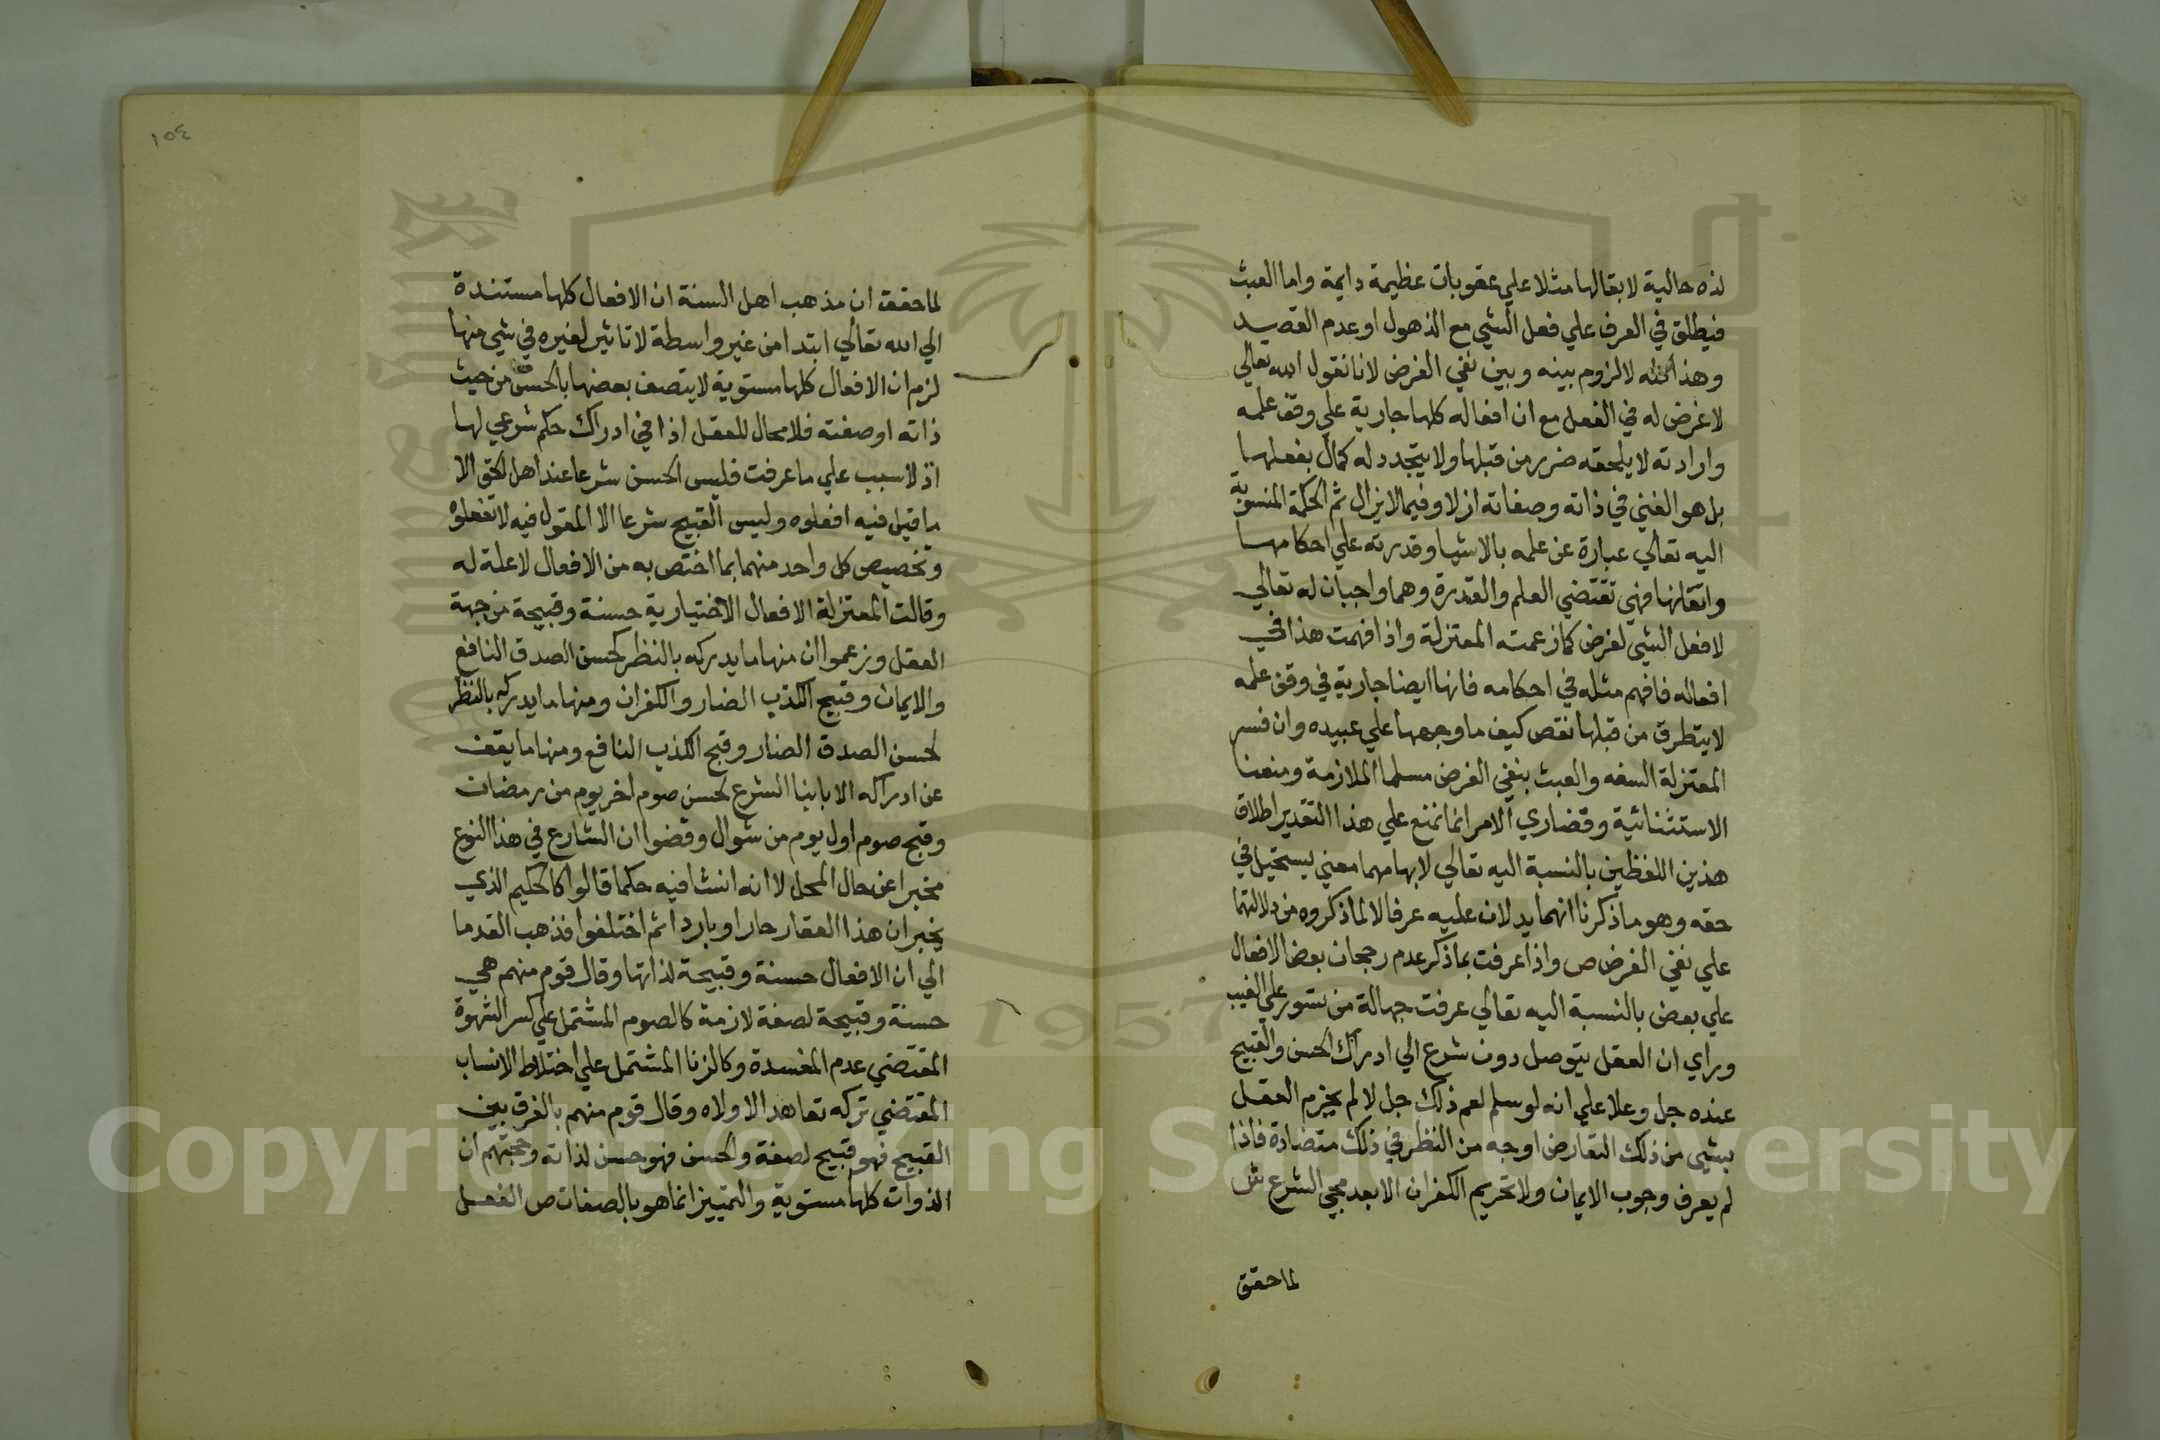 لذه حالية لا بقا لها مثلا علي عقوبات عظيمة دايمة واما العبث
فيطلق في العرف علي فعل الشي مع الذهول او عدم القصد
وهذا لا لزوم بينه وبين نفي الغرض لانا نقول الله تعالي
لا غرض له في الفعل مع ان افعاله كلها جارية علي وفق علمه
وارادته لا يلحقه ضرر من قبلها ولا يتجدد له كمال بفعلها
بل هو الغني في ذاته وصفاته ازلا وفيما لا يزال ثم الحكمة المنسوبة
اليه تعالي عبارة عن علمه بالاشيا وقدرته علي احكامها
واتقانها فهي تقتضي العلم والقدرة وهما واجبان له تعالي
لا فعل الشي لغرض كما زعمته المعتزلة واذا فهمت هذا في
افعاله فافهم مثله في احكامه فانها ايضا جارية في وفق علمه
لا يتطرق من قبلها نقص كيف ما وجهها علي عبيده وان فسر
المعتزلة السفه والعبث بنفي الغرض مسلما الملازمة ومنعنا
الاستثنائية وقضاري الامر انما نمنع علي هذا التقدير اطلاق
هذين اللفظين بالنسبة اليه تعالي لابهامهما معني يستحيل في
حقه وهو ما ذكرنا انهما يدلان عليه عرفا لا لما ذكروه من دلالتهما
علي نفي الغرض ص واذا عرفت بما ذكر عدم رجحان بعض الافعال
علي بعض بالنسبة اليه تعالي عرفت جهالة من تسور علي الغيب
وراي ان العقل يتوصل دون شرع الي ادراك الحسن والقبيح
عنده جل وعلا علي انه لو سلم لهم ذلك جل لا لم يجزم العقل
بشي من ذلك التعارض اوجه من النظر في ذلك متضادة فاذا
لم يعرف وجوب الايمان ولا تحريم الكفران الا بعد مجي الشرع ش
لما حقق
١٥٤
لما حقق ان مذهب اهل السنة ان الافعال كلها مستندة
الي الله تعالي ابتدا من غير واسطة لا تاثير لغيره في شي منها
لزم ان الافعال كلها مستوية لا يتصف بعضها بالحسن من حيث
ذاته او صفته فلا مجال للعقل اذا في ادراك حكم شرعي لها
اذ لا سبب علي ما عرفت فليس الحسن شرعا عند اهل الحق الا
ما قيل فيه افعلوه وليس القبيح شرعا الا المقول فيه لا تفعلوه
وتخصيص كل واحد منهما بما اختص به من الافعال لا علة له
وقالت المعتزلة الافعال الاختيارية حسنة وقبيحة من جهة
العقل وزعموا ان منها ما يدركه بالنظر كحسن الصدق النافع
والايمان وقبيح الكذب الضار والكفران ومنها ما يدركه بالنظر
لحسن الصدق الضار وقبح الكذب النافع ومنها ما يقف
عن ادراكه الا بانبا الشرع لحسن صوم اخر يوم من رمضان
وقبح صوم اول يوم من شوال وقضوا ان الشارع في هذا النوع
مخبرا عن حال المحل لا انه انشا فيه حكما قالوا كالحكيم الذي
يخبر ان هذا العقار حارا وباردا ثم اختلفوا فذهب القدما
الي ان الافعال حسنة وقبيحة لذاتها وقال قوم منهم هي
حسنة وقبيحة لصفة لازمة كالصوم المشتمل علي كسر الشهوة
المقتضي عدم المفسدة وكالزنا المشتمل علي اختلاط الانساب
المقتضي تركه تعاهد الاولاه وقال قوم منهم بالفرق بين
القبيح فهو قبيح لصفة والحسن فهو حسن لذاته وحجتهم ان
الذوات كلها مستوية والتمييز انما هو بالصفات ص الفعل
1957
Copyright © King Saud University